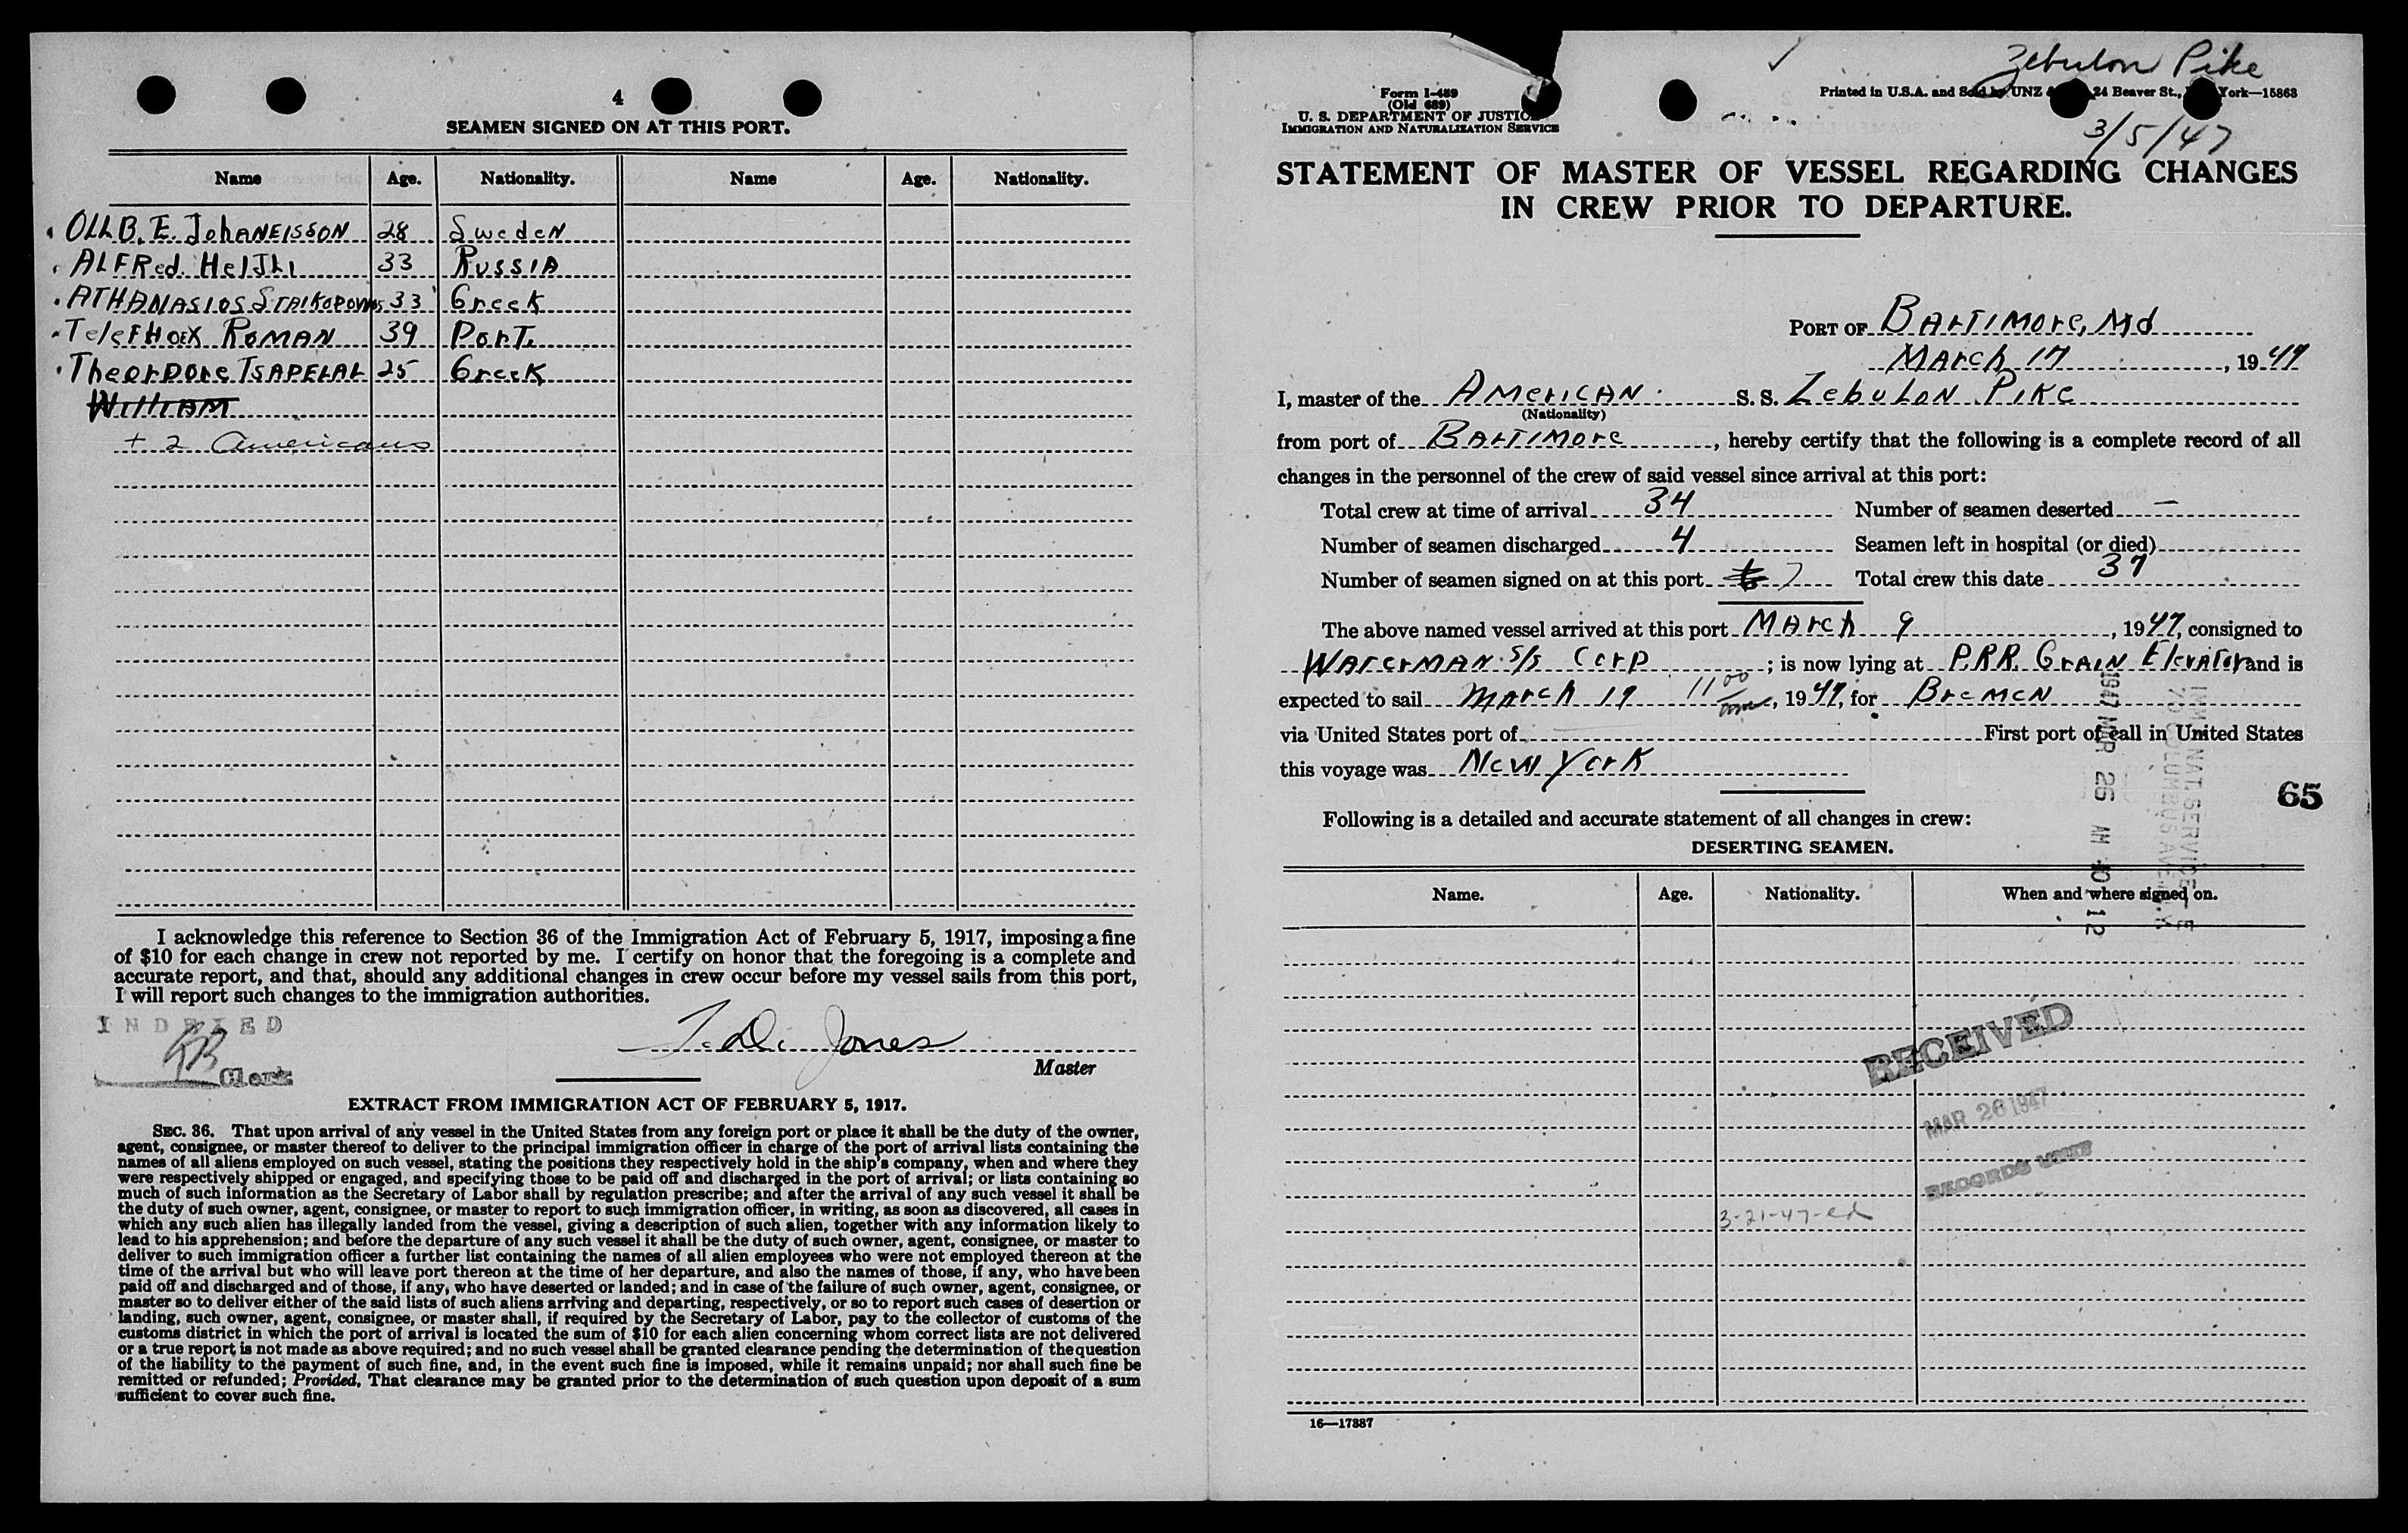 4
SEAMEN SIGNED ON AT THIS PORT.
Name Age. Nationality. Name Age. Nationality.
OLL B. E. JohANEISSON 28 SwedeN
ALFRed HelJLI 33 RUSSIA
ATHANASIOS STAIKOPOVLOS 33 Greek
TeleFHOEX ROMAN 39 PORT.
TheorDore TSAPELAL 25 Greek
William
+ 2 Americans
I acknowledge this reference to Section 36 of the Immigration Act of February 5, 1917, imposing a fine
of $10 for each change in crew not reported by me. I certify on honor that the foregoing is a complete and
accurate report, and that, should any additional changes in crew occur before my vessel sails from this port,
I will report such changes to the immigration authorities.
INDEXED
Clerk
Jones
Master
EXTRACT FROM IMMIGRATION ACT OF FEBRUARY 5, 1917.
SEC. 36. That upon arrival of any vessel in the United States from any foreign port or place it shall be the duty of the owner,
agent, consignee, or master thereof to deliver to the principal immigration officer in charge of the port of arrival lists containing the
names of all aliens employed on such vessel, stating the positions they respectively hold in the ship's company, when and where they
were respectively shipped or engaged, and specifying those to be paid off and discharged in the port of arrival; or lists containing so
much of such information as the Secretary of Labor shall by regulation prescribe; and after the arrival of any such vessel it shall be
the duty of such owner, agent, consignee, or master to report to such immigration officer, in writing, as soon as discovered, all cases in
which any such alien has illegally landed from the vessel, giving a description of such alien, together with any information likely to
lead to his apprehension; and before the departure of any such vessel it shall be the duty of such owner, agent, consignee, or master to
deliver to such immigration officer a further list containing the names of all alien employees who were not employed thereon at the
time of the arrival but who will leave port thereon at the time of her departure, and also the names of those, if any, who have been
paid off and discharged and of those, if any, who have deserted or landed; and in case of the failure of such owner, agent, consignee, or
master so to deliver either of the said lists of such aliens arriving and departing, respectively, or so to report such cases of desertion or
landing, such owner, agent, consignee, or master shall, if required by the Secretary of Labor, pay to the collector of customs of the
customs district in which the port of arrival is located the sum of $10 for each alien concerning whom correct lists are not delivered
or a true report is not made as above required; and no such vessel shall be granted clearance pending the determination of the question
of the liability to the payment of such fine, and, in the event such fine is imposed, while it remains unpaid; nor shall such fine be
remitted or refunded; Provided, That clearance may be granted prior to the determination of such question upon deposit of a sum
sufficient to cover such fine.
Zebulon Pike
Form I-489
(Old 689)
U. S. DEPARTMENT OF JUSTICE
IMMIGRATION AND NATURALIZATION SERVICE
Printed in U.S.A. and Sold by UNZ 24 Beaver St., York—15863
3/5/47
STATEMENT OF MASTER OF VESSEL REGARDING CHANGES
IN CREW PRIOR TO DEPARTURE.
PORT OF BALTIMORE, Md
MARCh 17, 1947
I, master of the AMERICAN S. S. ZebuLoN PIKE
(Nationality)
from port of BALTIMORE, hereby certify that the following is a complete record of all
changes in the personnel of the crew of said vessel since arrival at this port:
Total crew at time of arrival 34 Number of seamen deserted —
Number of seamen discharged 4 Seamen left in hospital (or died)
Number of seamen signed on at this port 6 7 Total crew this date 37
The above named vessel arrived at this port MARch 9, 1947, consigned to
WATERMAN S/S Corp; is now lying at P.R.R. GRAIN ElevATor and is
expected to sail March 19 11 00 am, 1947, for BremeN
via United States port of First port of call in United States
this voyage was New York
65
Following is a detailed and accurate statement of all changes in crew:
DESERTING SEAMEN.
Name. Age. Nationality. When and where signed on.
IMM. NAT. SERVICE
70 COLUMBUS AVE. N.Y.
1947 MAR 26 AM 10 12
RECEIVED
MAR 26 1947
RECORDS UNIT
3-21-47-ed
16—17887